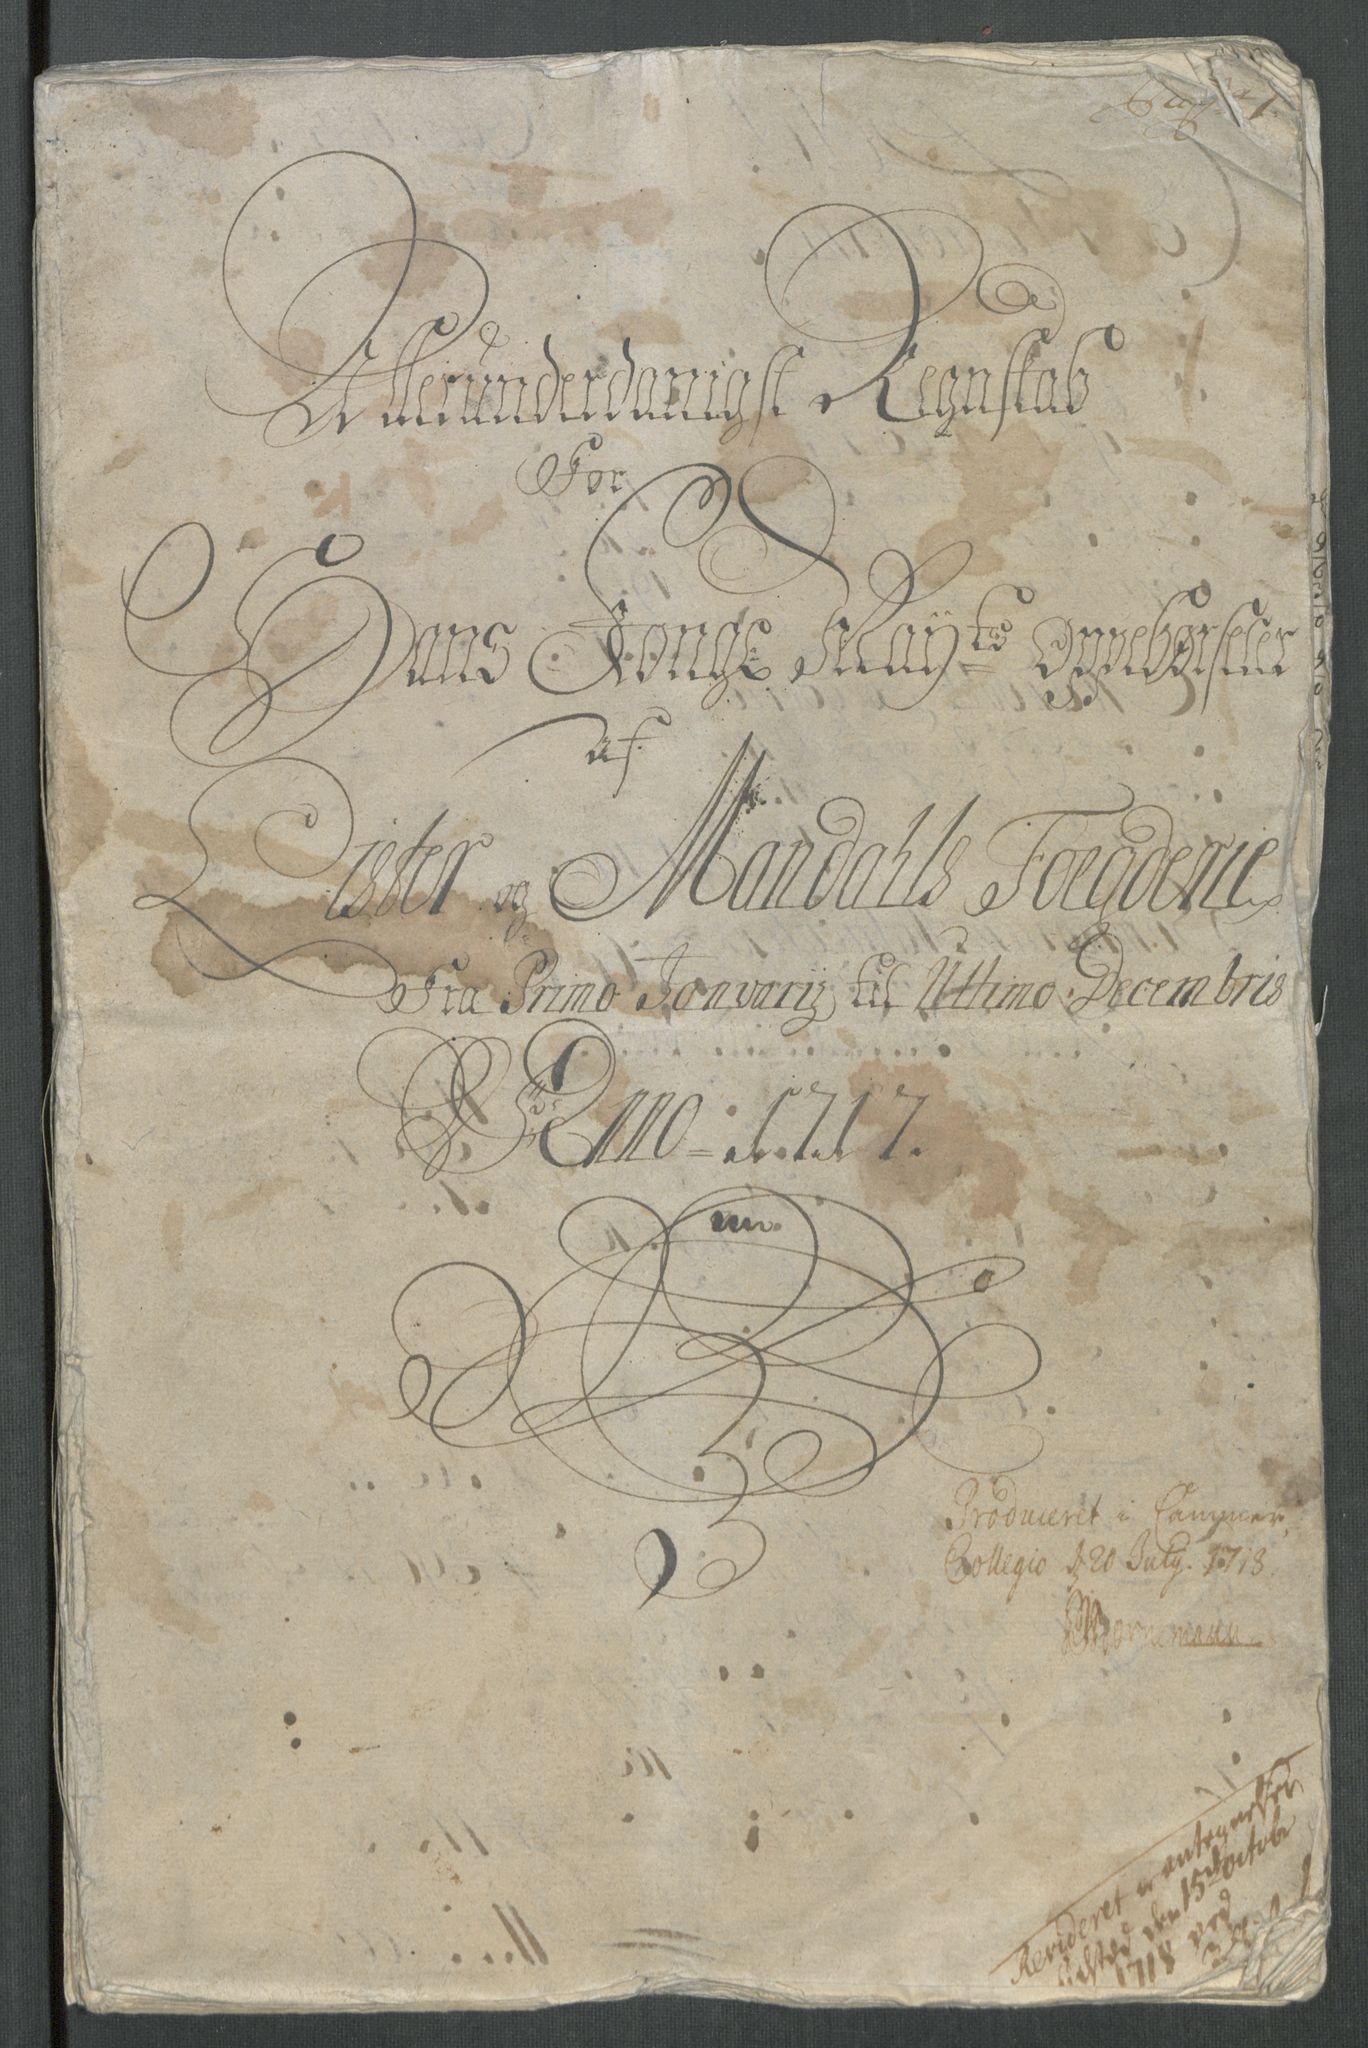 Allerunderdanigst Regnskab
For
Hans Konge Mayts Oppebørseler
af
Lister og Mandahls Foegderie
Fra Primo Janvarij til Ultimo Decembris
Anno 1717.
Produceret i Cammer
Collegio d 20 July. 1718.
Bornemann
Revideret
den 15de Octobr
1718